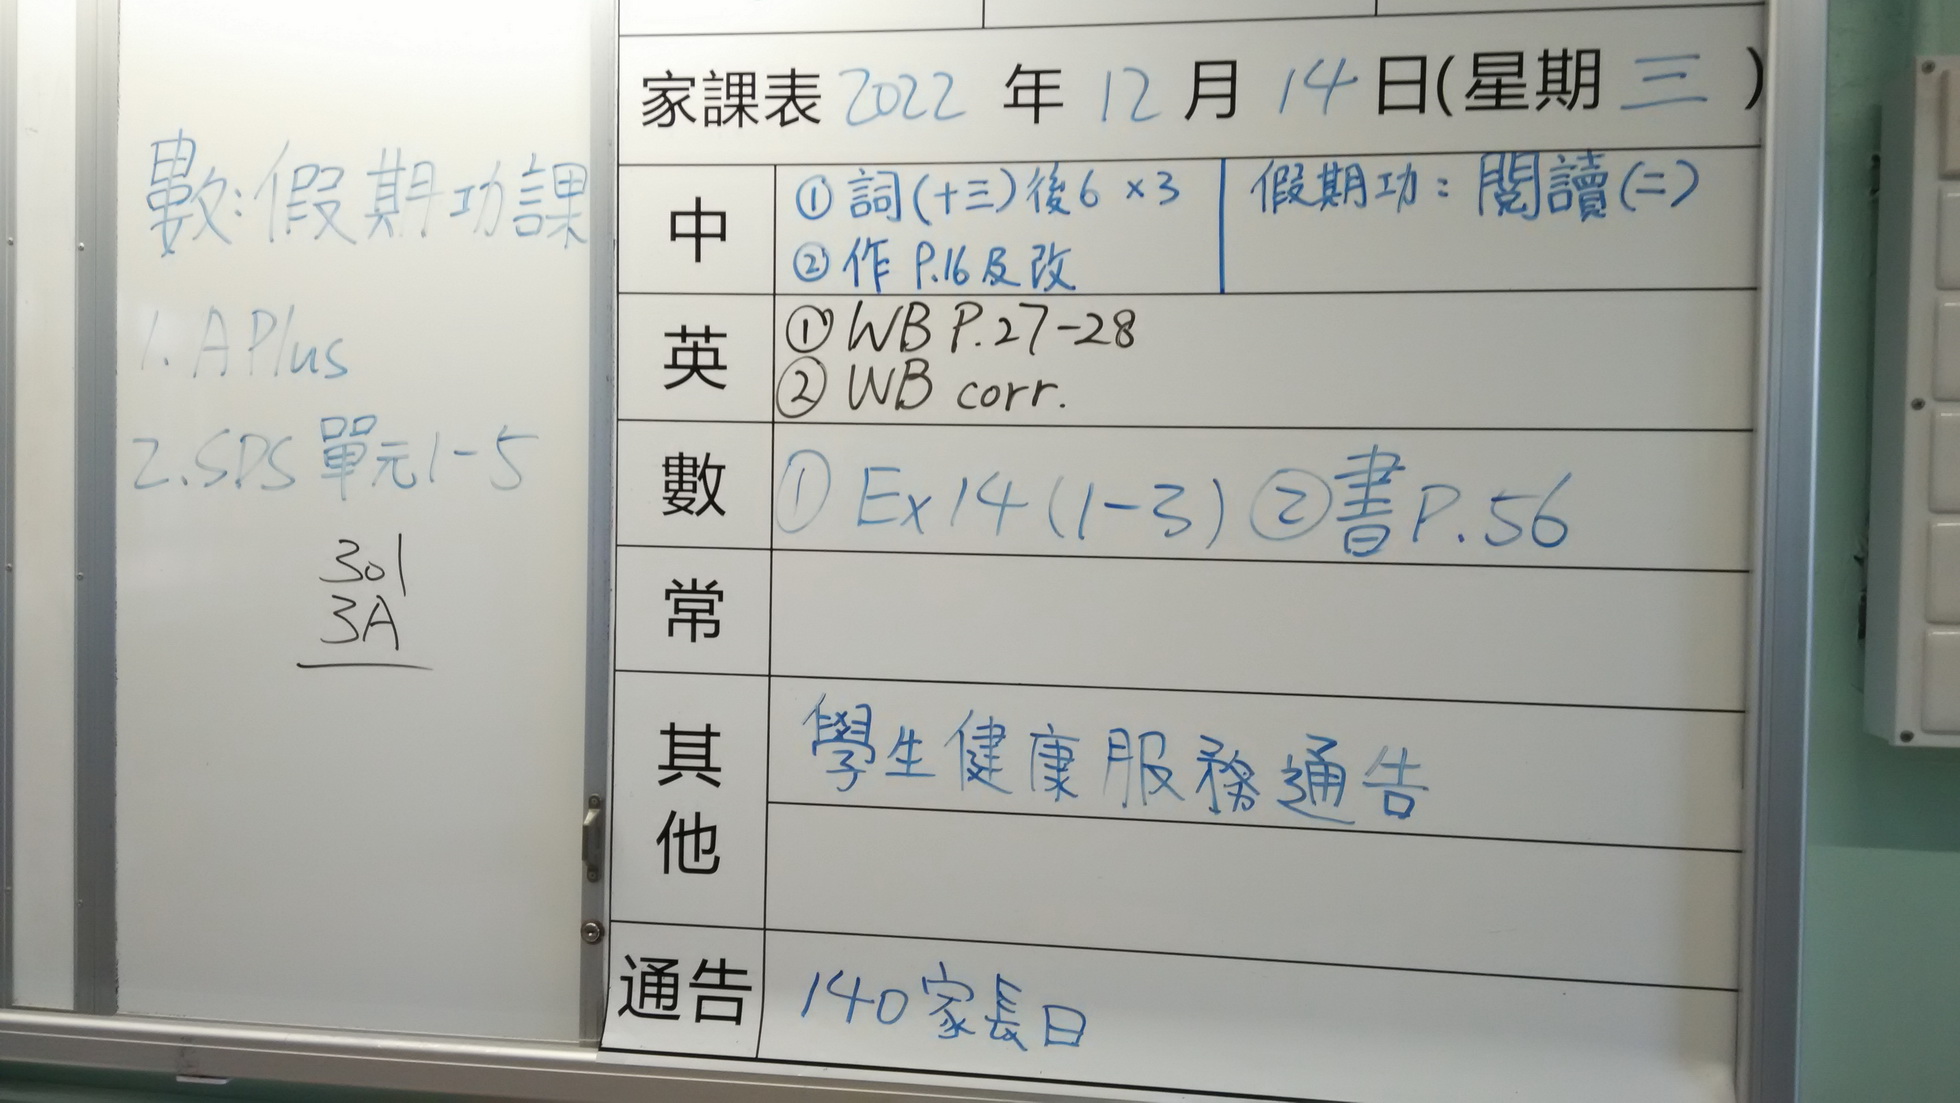 數:假期功課
1. A Plus
2. SDS 單元1-5
301
3A
家課表 2022 年 12 月 14 日(星期 三 )
中 ① 詞(十三)後6 ×3 假期功:閱讀(二)
② 作 P.16 及改
英 ① WB P.27-28
② WB corr.
數 ① Ex14 (1-3) ② 書 P.56
常
其他 學生健康服務通告
通告 140 家長日